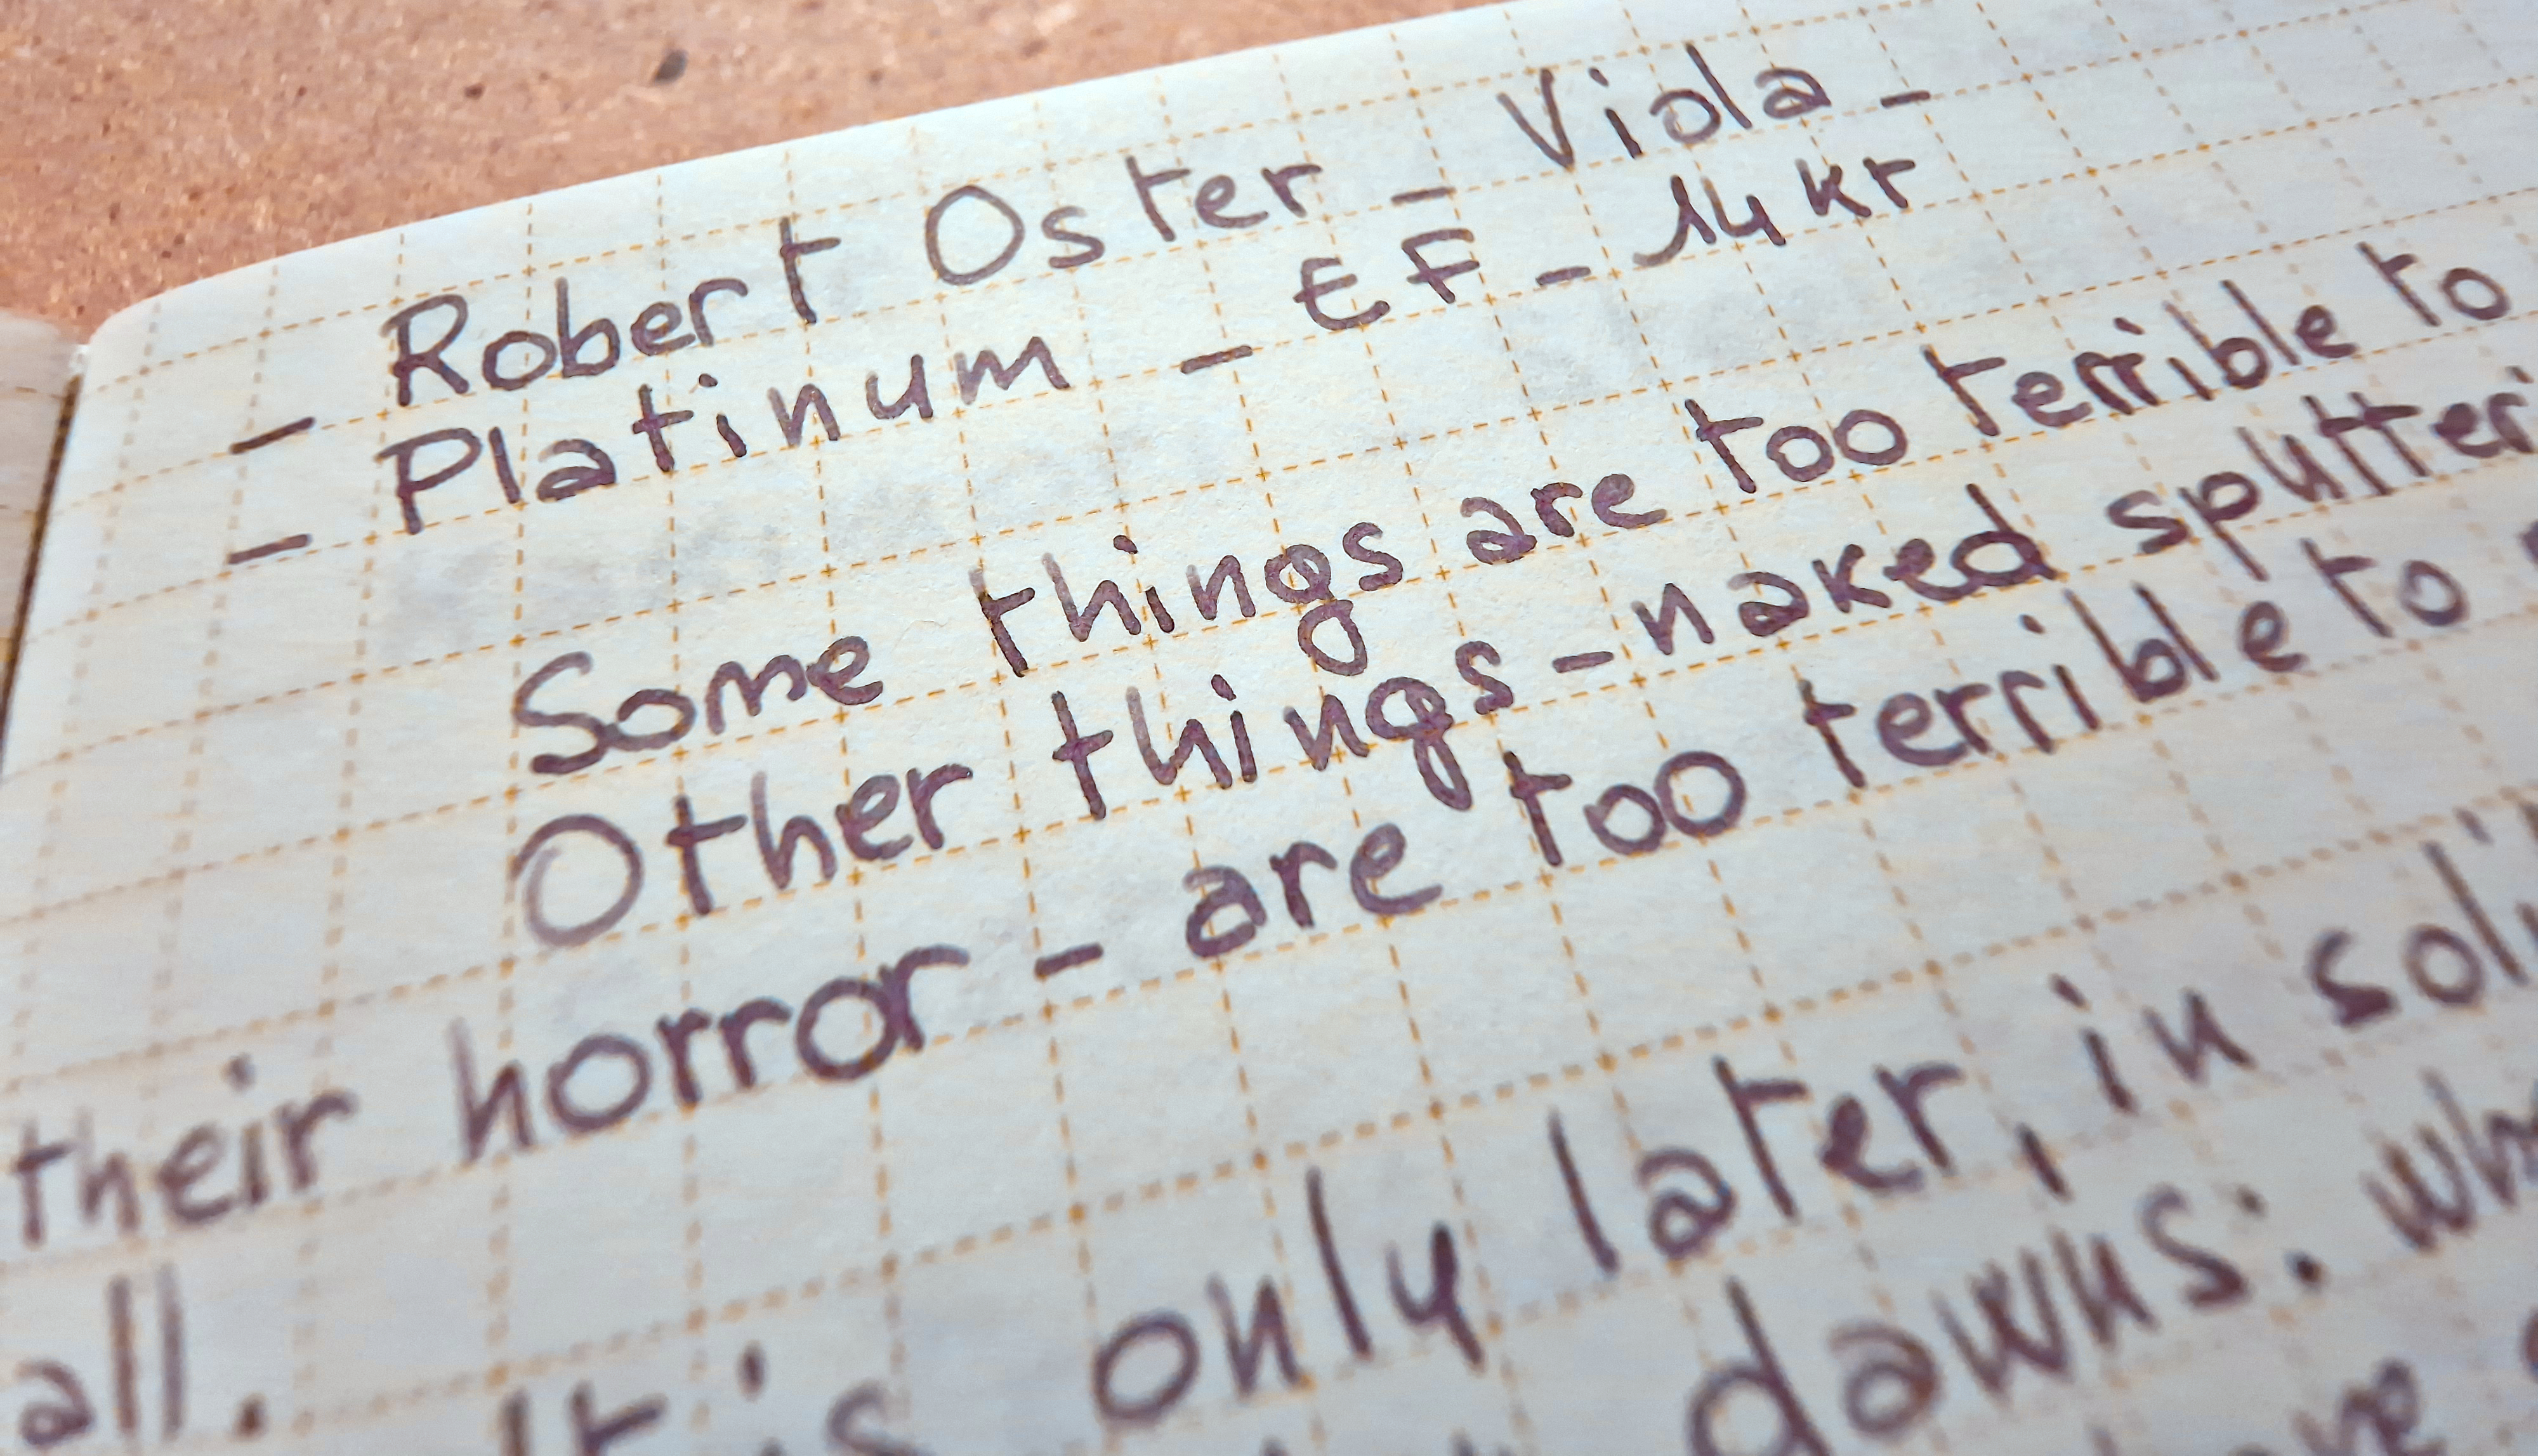 - Robert Oster - Viola -
- Platinum - EF - 14kr
Some things are too terrible to
Other things - naked sputter
their horror - are too terrible to
all.
It is only later, in soli
dawns: wh